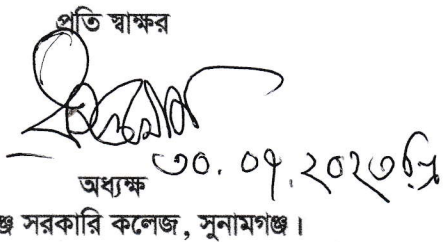 প্রতি স্বাক্ষর
৩০.০৭.২০২৩ খ্রি
অধ্যক্ষ
ঞ্জ সরকারি কলেজ, সুনামগঞ্জ।